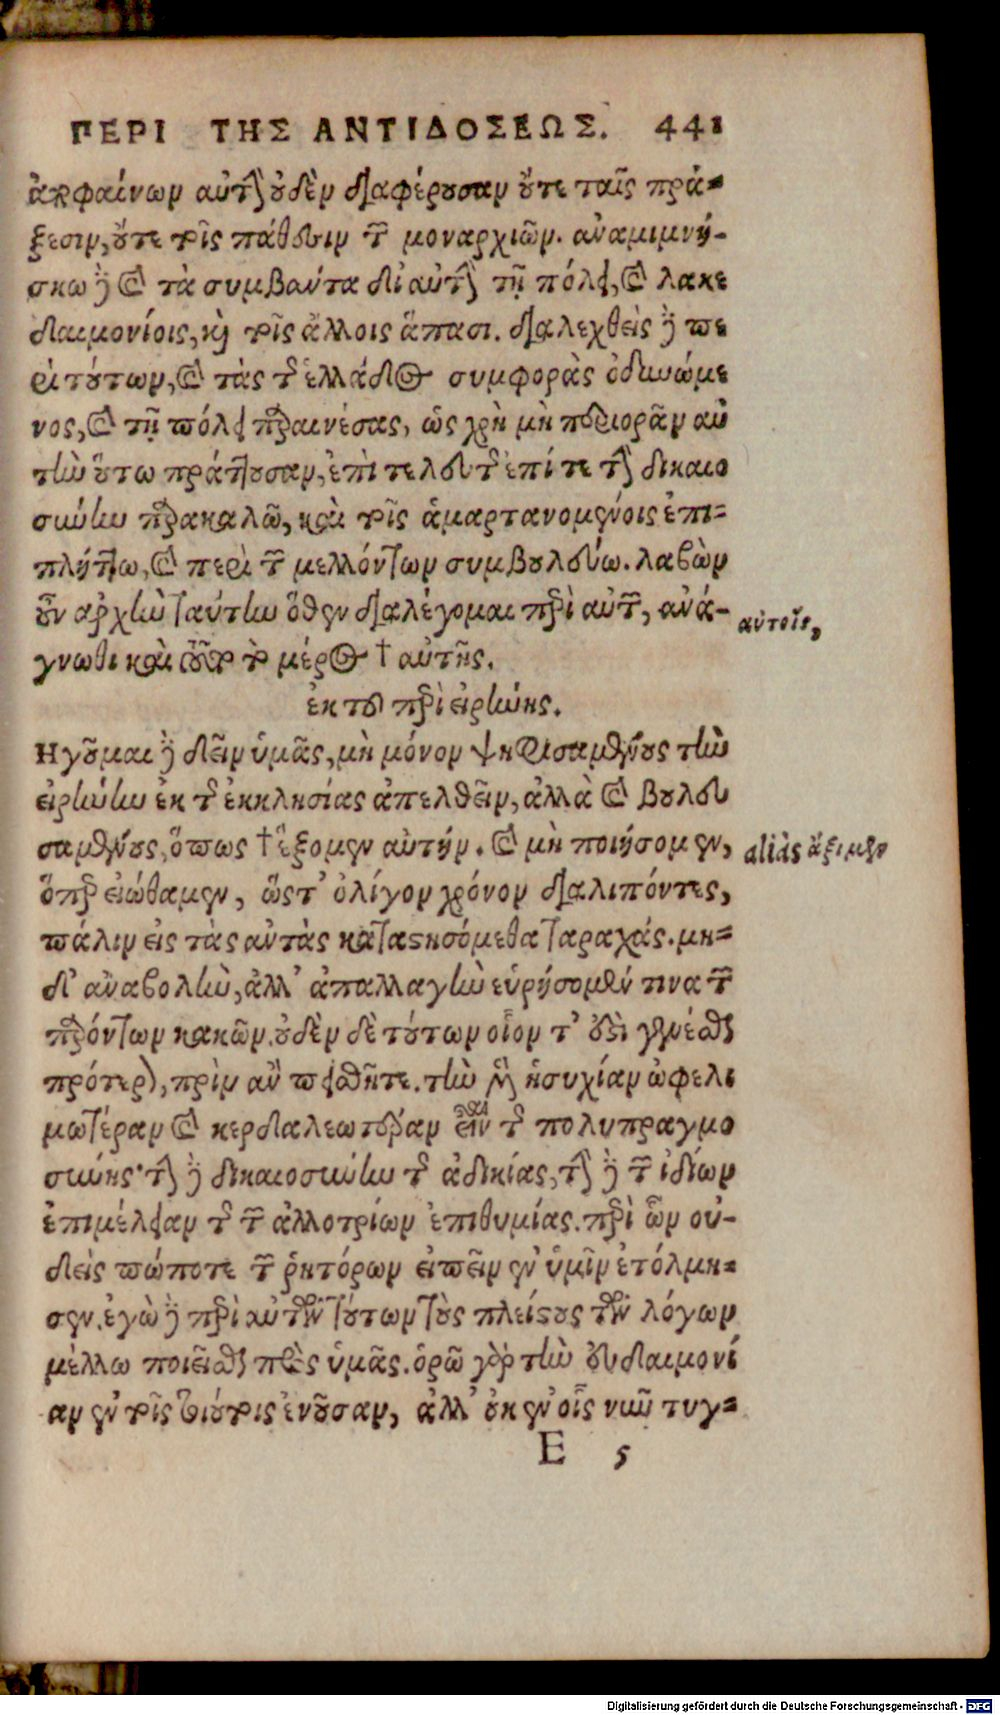 ΠΕΡΙ ΤΗΣ ΑΝΤΙΔΟΣΕΩΣ. 441
ἀποφαίνων αὐτὴν οὐδὲν διαφέρουσαν οὔτε ταῖς πρά-
ξεσιν, οὔτε τοῖς πάθεσιν τῶν μοναρχιῶν. ἀναμιμνή-
σκω δὲ καὶ τὰ συμβάντα δι' αὐτὴν τῇ πόλει, καὶ λακε
δαιμονίοις, καὶ τοῖς ἄλλοις ἅπασι. διαλεχθεὶς δὲ πε
ρὶ τούτων, καὶ τὰς τῆς ἑλλάδος συμφορὰς ὀδυνώμε
νος, καὶ τῇ πόλει παραινέσας, ὡς χρὴ μὴ περιορᾶν αὐ
τὴν οὕτω πράττουσαν, ἐπὶ τελευτῆς ἐπί τε τὴν δικαιο
σύνην παρακαλῶ, καὶ τοῖς ἁμαρτανομένοις ἐπι-
πλήττω, καὶ περὶ τῶν μελλόντων συμβουλεύω. λαβὼν
οὖν ἀρχὴν ταύτην ὅθεν διαλέγομαι περὶ αὐτῶν, ἀνά-
αὐτοῖς,
γνωθι καὶ τοῦτο τὸ μέρος † αὐτῆς.
ἐκ τοῦ περὶ εἰρήνης.
Ηγοῦμαι δὲ δεῖν ὑμᾶς, μὴ μόνον ψηφισαμένους τὴν
εἰρήνην ἐκ τῆς ἐκκλησίας ἀπελθεῖν, ἀλλὰ καὶ βουλευ
σαμένους, ὅπως † ἕξομεν αὐτήν. καὶ μὴ ποιήσομεν,
aliàs ἄξιμεν
ὅπερ εἰώθαμεν, ὥστ' ὀλίγον χρόνον διαλιπόντες,
πάλιν εἰς τὰς αὐτὰς καταστησόμεθα ταραχάς. μη-
δ' ἀναβολὴν, ἀλλ' ἀπαλλαγὴν εὑρήσομέν τινα τῶν
παρόντων κακῶν. οὐδὲν δὲ τούτων οἷόν τ' ἐστὶ γενέσθαι
πρότερον, πρὶν ἂν πεισθῆτε. τὴν μὲν ἡσυχίαν ὠφελι
μωτέραν καὶ κερδαλεωτέραν εἶναι τῆς πολυπραγμο
σύνης· τὴν δὲ δικαιοσύνην τῆς ἀδικίας, τὴν δὲ τῶν ἰδίων
ἐπιμέλειαν τῆς τῶν ἀλλοτρίων ἐπιθυμίας. περὶ ὧν οὐ-
δεὶς πώποτε τῶν ῥητόρων εἰπεῖν ἐν ὑμῖν ἐτόλμη-
σεν. ἐγὼ δὲ περὶ αὐτῶν τούτων τοὺς πλείστους τῶν λόγων
μέλλω ποιεῖσθαι πρὸς ὑμᾶς. ὁρῶ γὰρ τὴν εὐδαιμονί
αν ἐν τοῖς τούτοις ἐνοῦσαν, ἀλλ' οὐκ ἐν οἷς νῦν τυγ-
E 5
Digitalisierung gefördert durch die Deutsche Forschungsgemeinschaft - DFG